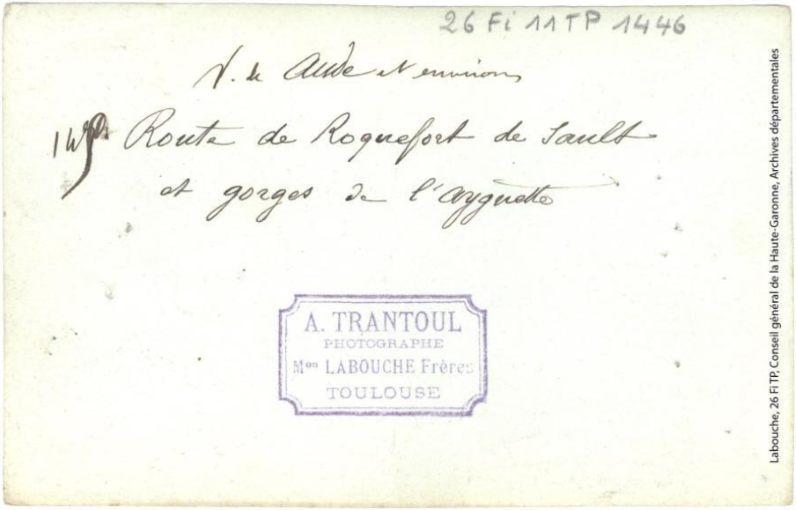 26 Fi 11TP 1446
V. de Aude et environs
Route de Roquefort de Sault
et gorges de l'ayguette
A. TRANTOUL
PHOTOGRAPHE
Mon LABOUCHE Frères
TOULOUSE
Labouche, 26 Fi TP, Conseil général de la Haute-Garonne, Archives départementales